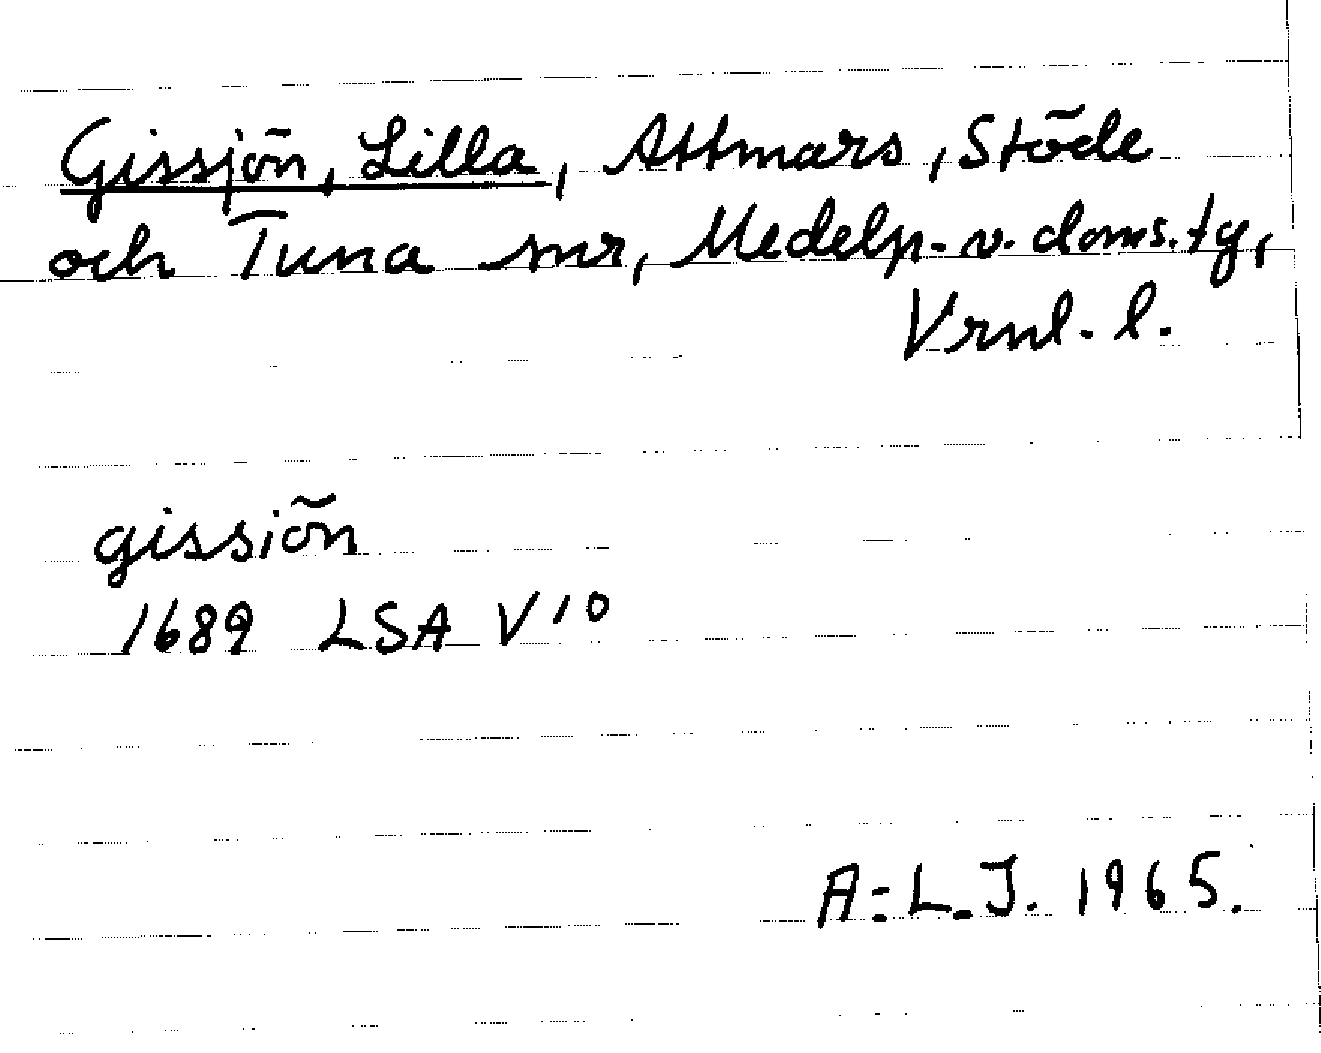 Gissjön, Lilla, Attmars, Stöde
och Tuna snr, Medelp. v. doms. tg,
Vrnl. l.
gissiön
1689 LSA V 10
A-L.J. 1965.